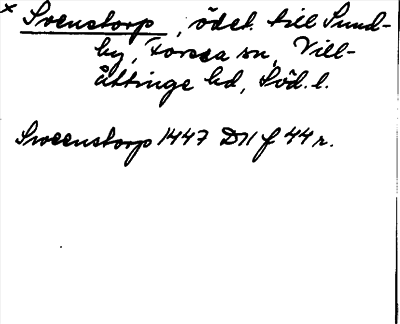 x Svenstorp, ödet. till Sund-
by, Forssa sn, Vill-
åttinge hd, Söd. l.
Swenstorp 1447 D11 f 44 r.